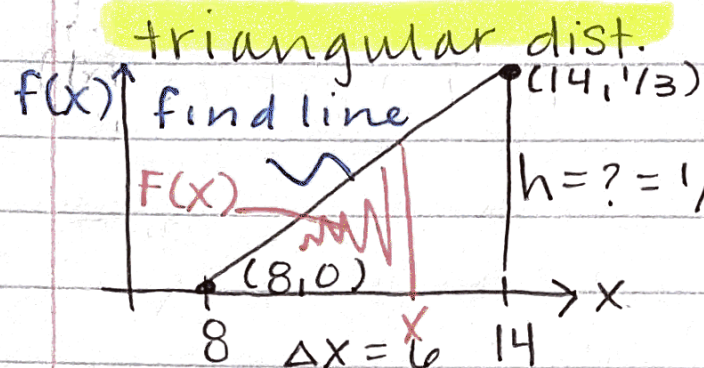 triangular dist.
f(x)
find line
(14, 1/3)
F(x)
h = ? = 1/
(8,0)
x
8
x
14
Δx = 6